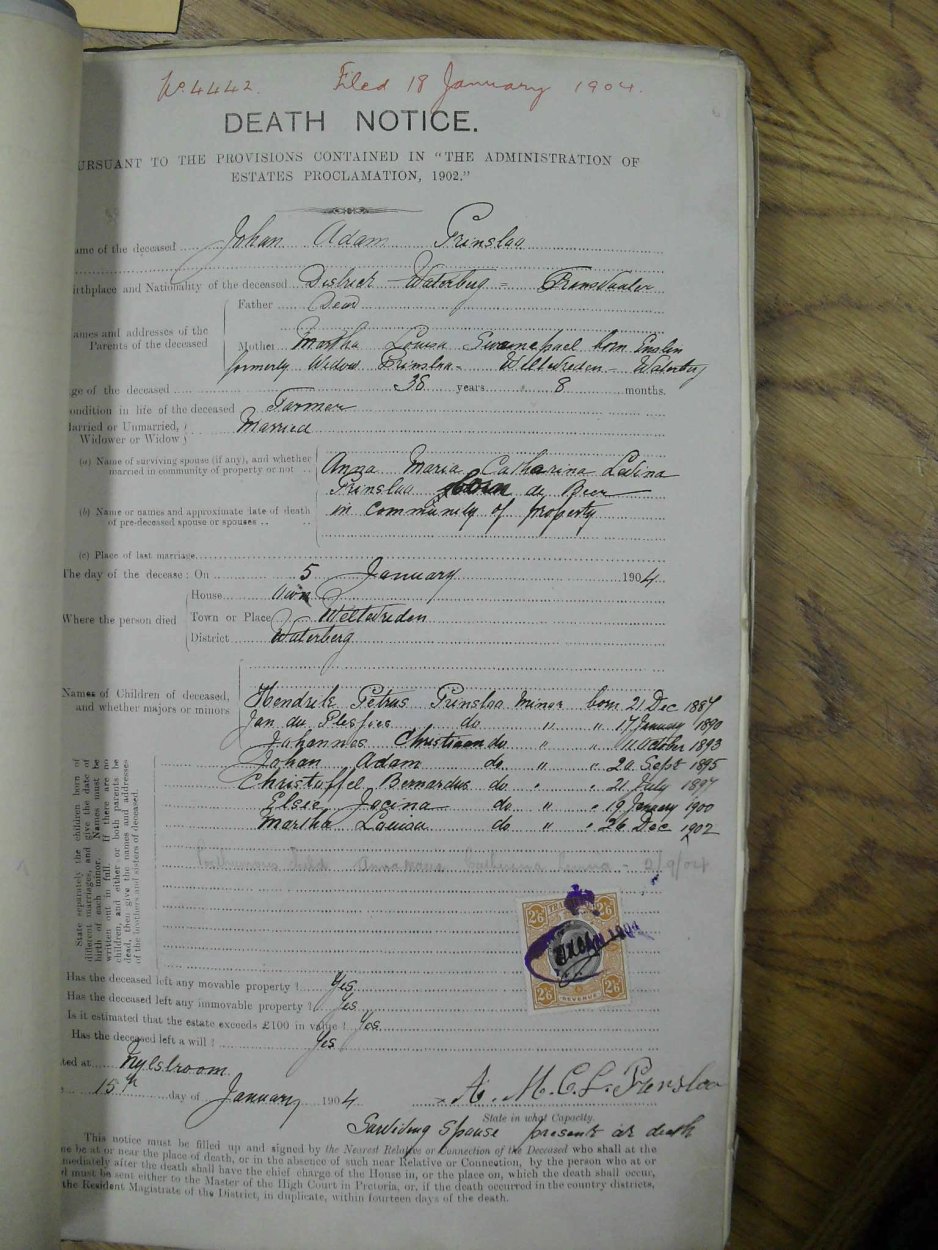 No. 4442. Filed 18 January 1904.
DEATH NOTICE.
URSUANT TO THE PROVISIONS CONTAINED IN "THE ADMINISTRATION OF
ESTATES PROCLAMATION, 1902."
ame of the deceased Johan Adam Prinsloo
irthplace and Nationality of the deceased District Waterberg = Transvaaler
Father Dead
ames and addresses of the
Parents of the deceased
Mother Martha Louisa Swanepoel born Enslin
formerly Widow Prinsloo - Weltevreden - Waterberg
ge of the deceased 36 years 8 months.
ondition in life of the deceased Farmer
arried or Unmarried,
Widower or Widow
Married
(a) Name of surviving spouse (if any), and whether
married in community of property or not
Anna Maria Catharina Lavina
Prinsloo born de Beer
in community of property
(b) Name or names and approximate date of death
of pre-deceased spouse or spouses
(c) Place of last marriage
The day of the decease: On 5 January 1904
House Own
Where the person died Town or Place Weltevreden
District Waterberg
Names of Children of deceased,
and whether majors or minors
Hendrik Petrus Prinsloo minor born 21 Dec 1887
Jan du Plessies do " " 17 January 1890
Johannes Christiaan do " " 11 October 1893
Johan Adam do " " 20 Sept 1895
Christoffel Bernardus do " " 21 July 1897
Elsie Jacina do " " 19 January 1900
Martha Louisa do " " 26 Dec 1902
Posthumous child Anna Maria Catharina - 2/9/04
State separately the children born of
different marriages, and give the date of
birth of each minor. Names must be
written out in full. If there are no
children, and either or both parents be
dead, then give the names and addresses
of the brothers and sisters of deceased.
2/6 2/6
2/6 REVENUE 2/6
Has the deceased left any movable property? Yes
Has the deceased left any immovable property? Yes
Is it estimated that the estate exceeds £100 in value? Yes
Has the deceased left a will? Yes
ted at Nylstroom
15th day of January 1904 A. M. C. L. Prinsloo
State in what Capacity.
Surviving Spouse present at death
This notice must be filled up and signed by the Nearest Relative or Connection of the Deceased who shall at the
me be at or near the place of death, or in the absence of such near Relative or Connection, by the person who at or
mediately after the death shall have the chief charge of the House in, or the place on, which the death shall occur,
d must be sent either to the Master of the High Court in Pretoria, or, if the death occurred in the country districts,
the Resident Magistrate of the District, in duplicate, within fourteen days of the death.